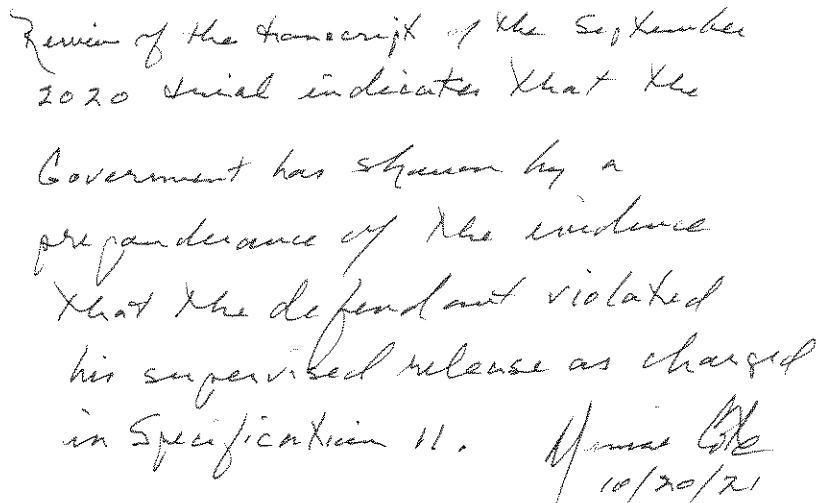 Review of the transcript of the September
2020 trial indicates that the
Government has shown by a
preponderance of the evidence
that the defendant violated
his supervised release as charged
in Specification 11. Denise Cote
10/20/21